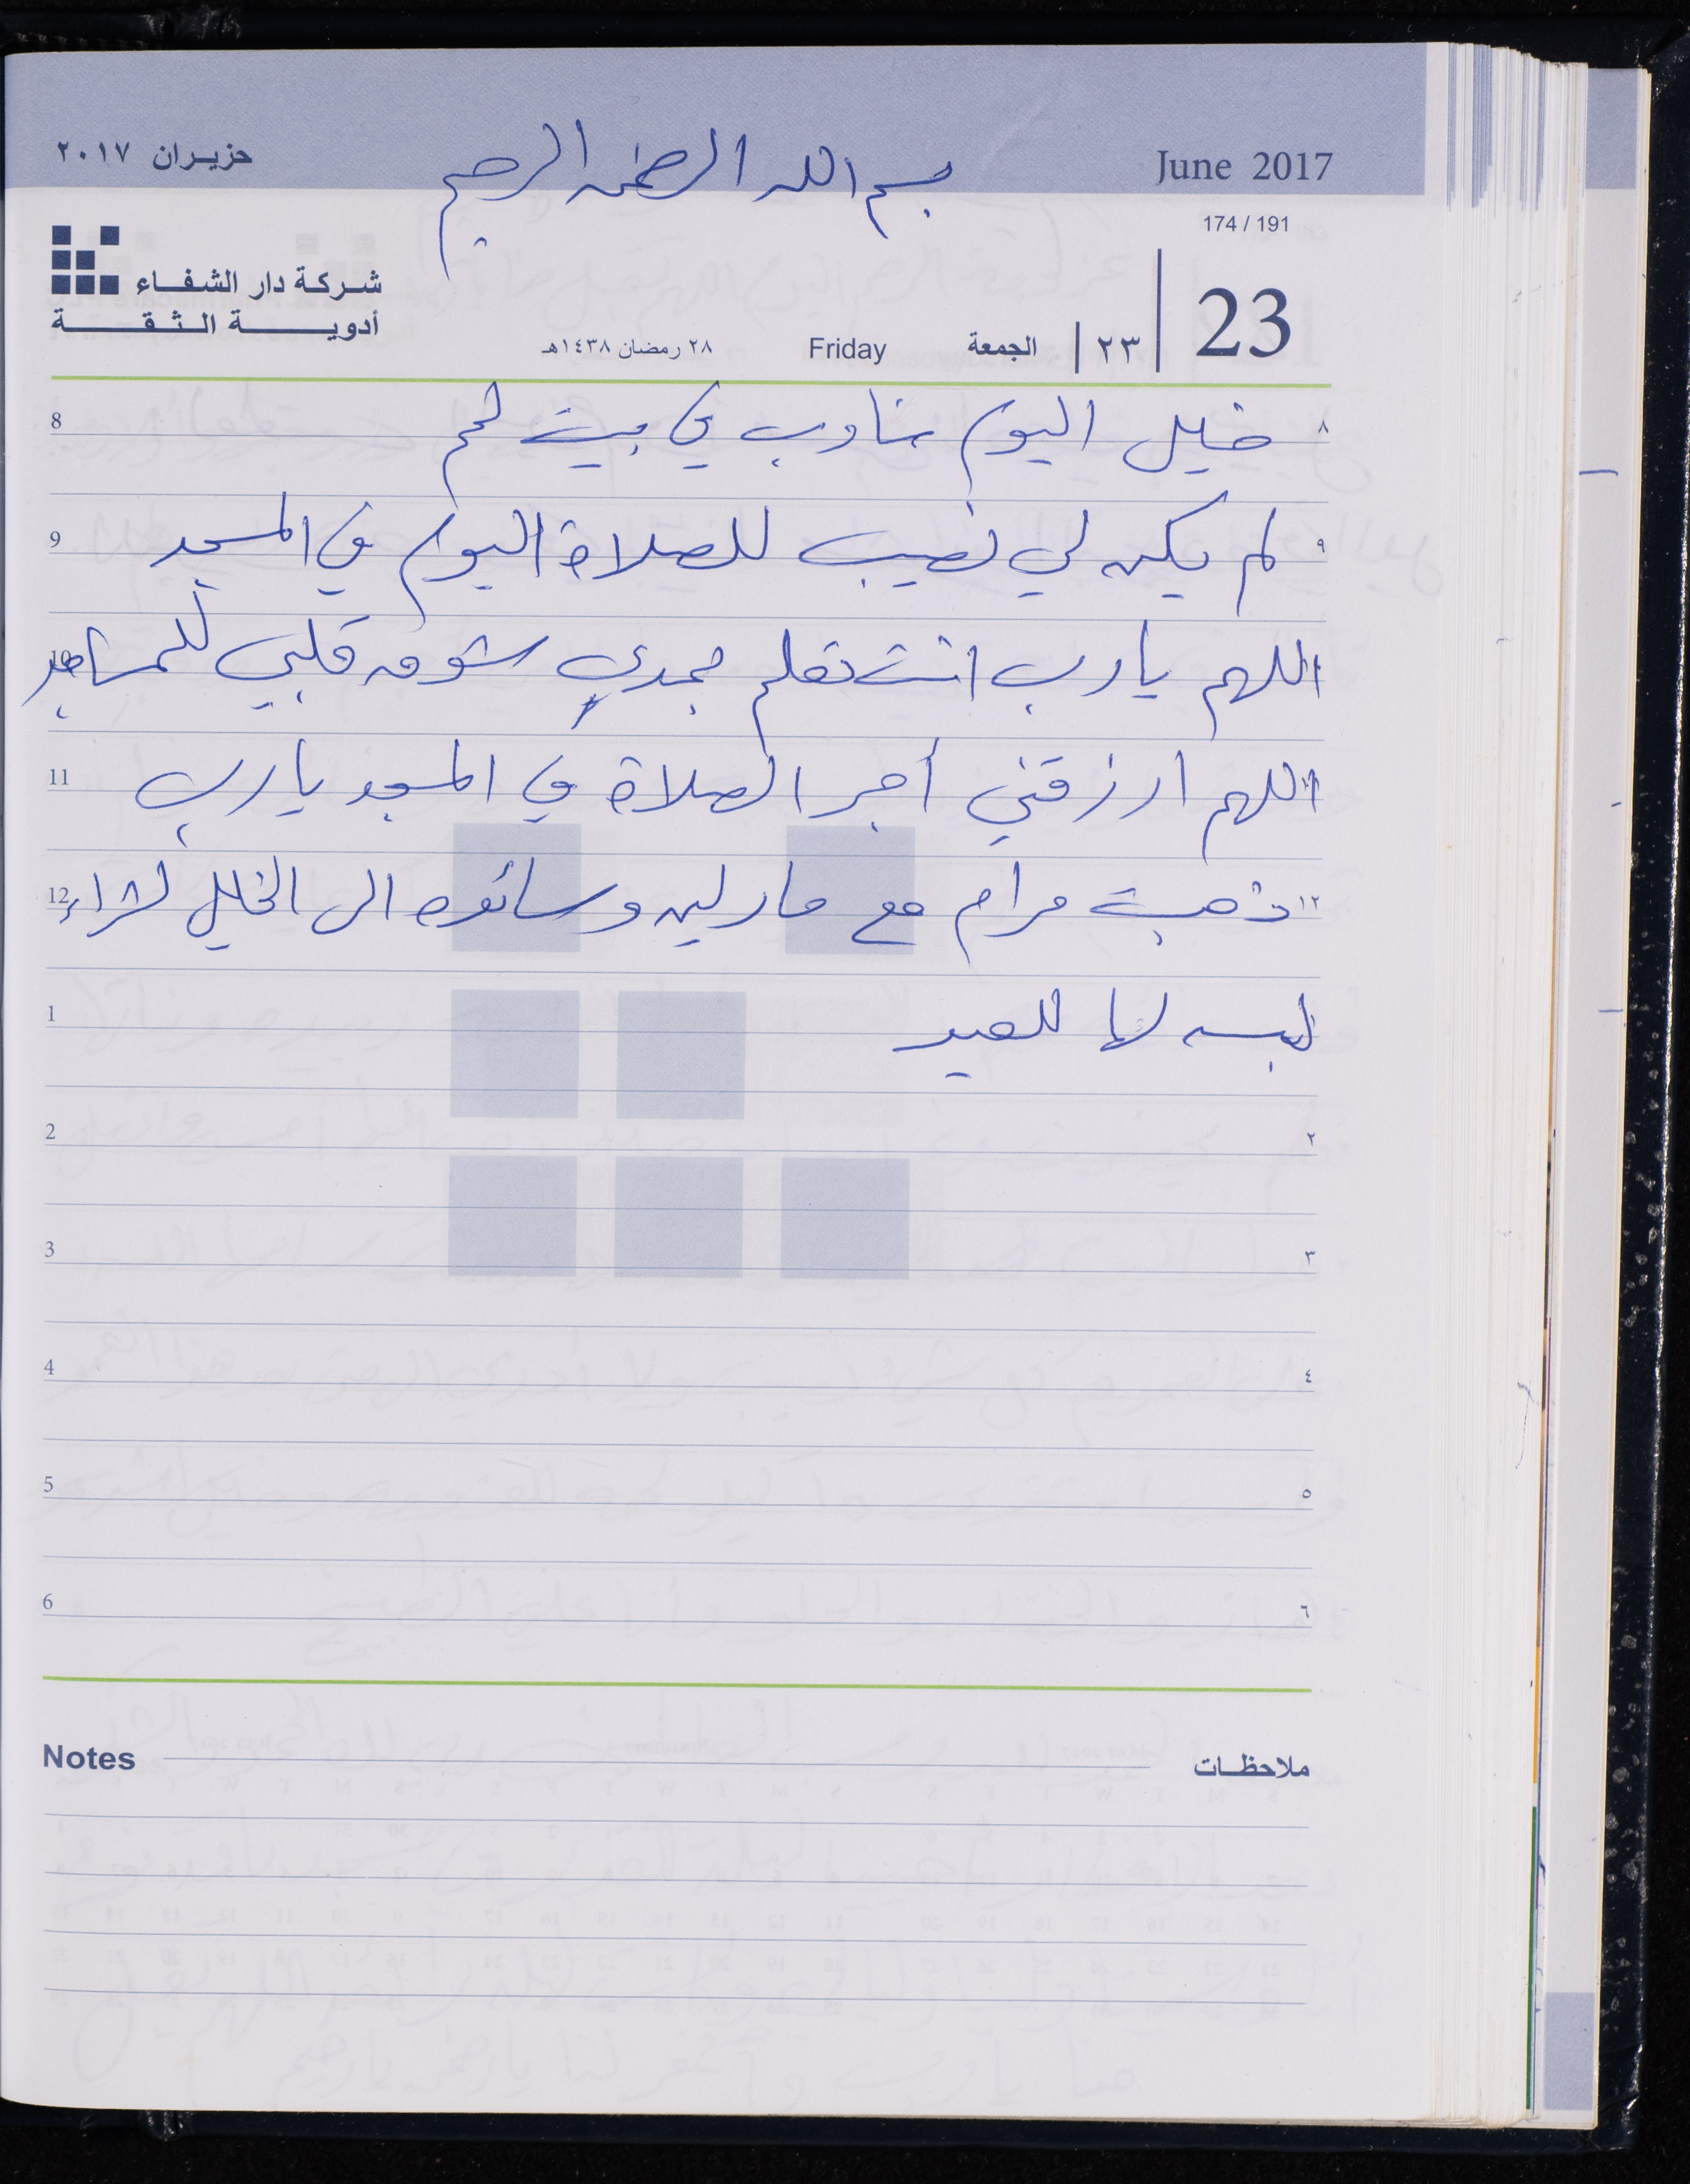 حزيران ٢٠١٧
بسم الله الرحمن الرحيم
June 2017
174 / 191
شركة دار الشفاء
أدوية الثقة
٢٨ رمضان ١٤٣٨هـ
Friday
الجمعة
٢٣
23
8 خليل اليوم مناوب في بيت لحم ٨
9 لم يكن لي نصيب للصلاة اليوم في المسجد ٩
10 اللهم يا رب انت تعلم بمدى شوق قلبي للمساجد
11 اللهم ارزقني أجر الصلاة في المسجد يا رب
12 ذهبت مرام مع مارلين وسائده الى الخليل لشراء ١٢
1 لبسه لها للعيد
2 ٢
3 ٣
4 ٤
5 ٥
6 ٦
Notes ملاحظات